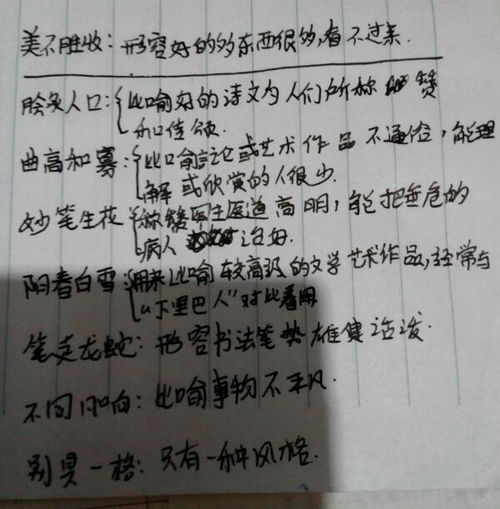 美不胜收：形容好的的多东西很多，看不过来.
脍炙人口：比喻好的诗文为人们所称赞
和传颂.
曲高和寡：比喻言论或艺术作品不通俗，能理
解或欣赏的人很少.
妙笔生花 称赞医生医道高明，能把垂危的
病人 治好.
阳春白雪：用来比喻较高级的文学艺术作品，经常与
"下里巴人"对比着用
笔走龙蛇：形容书法笔势雄健活泼.
不同凡响：比喻事物不平凡.
别具一格：只有一种风格.